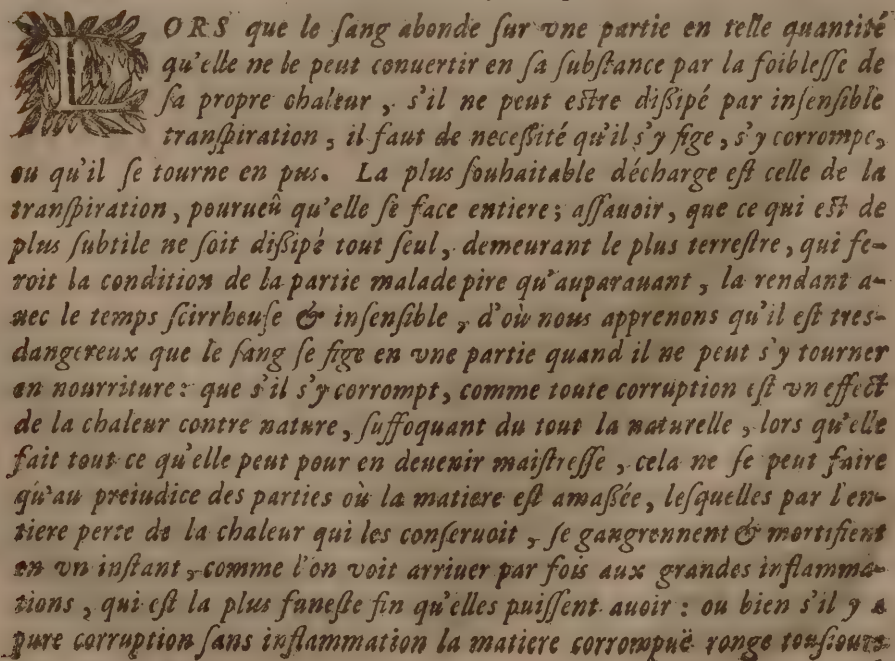 LORS que le ſang abonde ſur vne partie en telle quantité
qu'elle ne le peut conuertir en ſa ſubſtance par la foibleſſe de
ſa propre chaleur, s'il ne peut eſtre diſsipé par inſenſible
tranſpiration, il faut de neceſsité qu'il s'y fige, s'y corrompe,
ou qu'il ſe tourne en pus. La plus ſouhaitable décharge eſt celle de la
tranſpiration, pourueû qu'elle ſe face entiere; aſſauoir, que ce qui eſt de
plus ſubtile ne ſoit diſsipé tout ſeul, demeurant le plus terreſtre, qui fe-
roit la condition de la partie malade pire qu'auparauant, la rendant a-
uec le temps ſcirrheuſe & inſenſible, d'où nous apprenons qu'il eſt tres-
dangereux que le ſang ſe fige en vne partie quand il ne peut s'y tourner
en nourriture: que s'il s'y corrompt, comme toute corruption eſt vn effect
de la chaleur contre nature, ſuffoquant du tout la naturelle, lors qu'elle
fait tout ce qu'elle peut pour en deuenir maiſtreſſe, cela ne ſe peut faire
qu'au preiudice des parties où la matiere eſt amaßée, leſquelles par l'en-
tiere perte de la chaleur qui les conſeruoit, ſe gangrennent & mortifient
en vn inſtant, comme l'on voit arriuer par fois aux grandes inflamma-
tions, qui eſt la plus funeſte fin qu'elles puiſſent auoir: ou bien s'il y a
pure corruption ſans inflammation la matiere corrompuë ronge touſiours